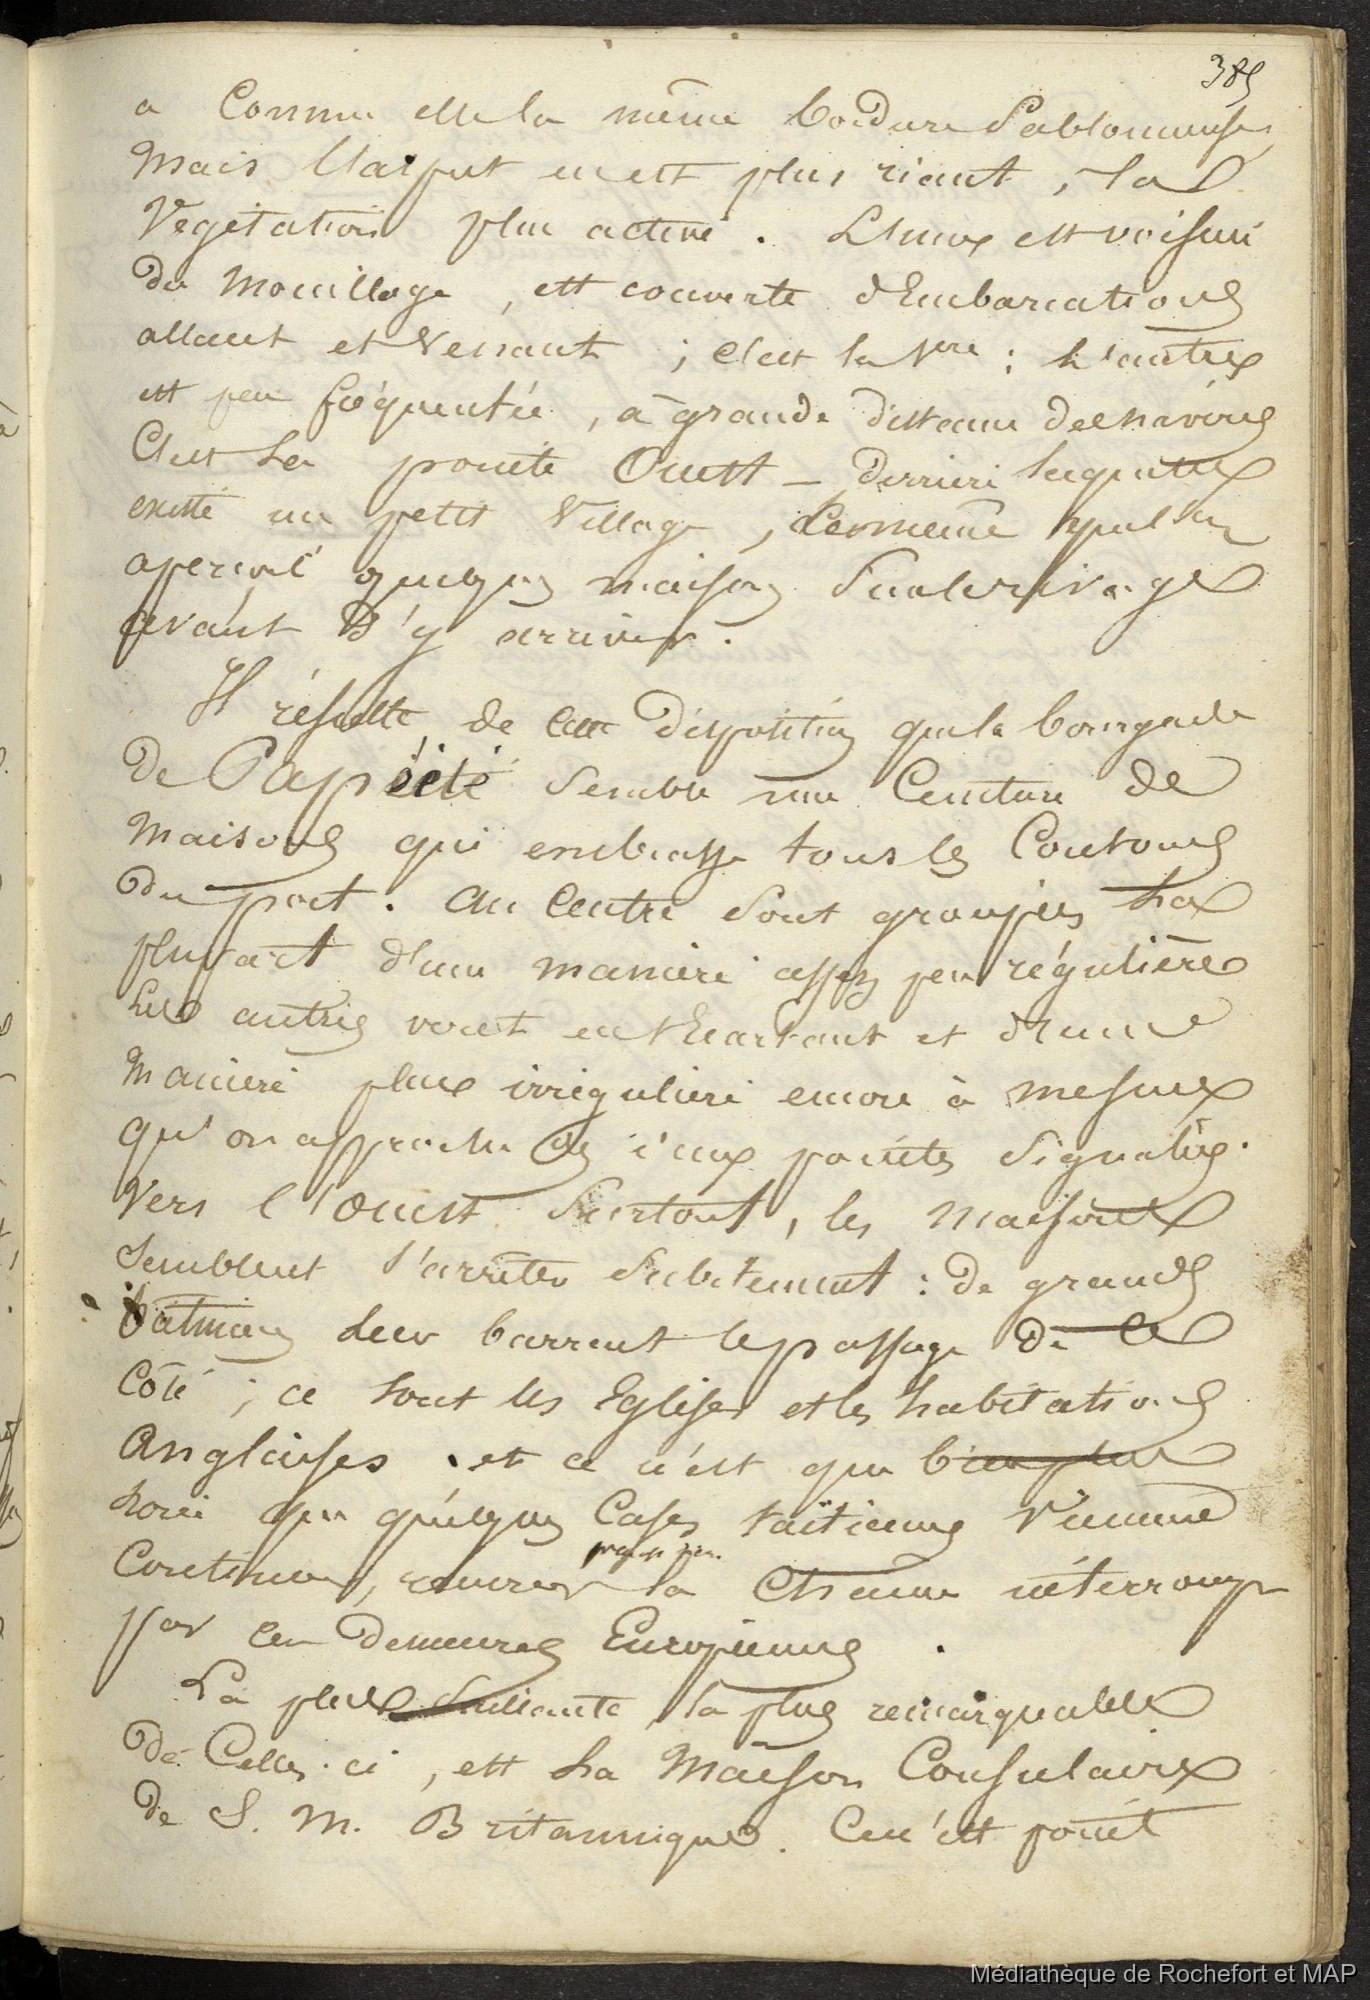 385
a comme elle la même bordure sablonneuse,
mais l'aspect en est plus riant, la
végétation plus active. L'une est voisine
du mouillage, est couverte d'embarcations
allant et venant ; c'est la 1ere : l'autre
est peu fréquentée, à grande distance des navires
C'est la pointe Ouest – derrière laquelle
existe un petit village, de même que l'on
aperçoit quelques maisons sur le rivage
avant d'y arriver.
Il résulte de cette disposition que la bourgade
de Papéité semble une ceinture de
maisons qui embrasse tous les contours
du port. Au centre sont groupées la
plupart d'une manière assez peu régulière
les autres vont en s'écartant et d'une
manière plus irrégulière encore à mesure
qu'on approche des deux pointes signalées.
Vers l'Ouest surtout, les maisons
semblent s'arrêter subitement : de grands
bâtimens leur barrent le passage de ce
côté ; ce sont les Eglises et les habitations
Anglaises. et ce n'est que bien plus
loin que quelques cases taïtiennes viennent
continuer, la chaine interrompue
par ces demeures Européennes.
La plus saillante, la plus remarquable
de celles-ci, est la Maison Consulaire
de S. M. Britannique. Ce n'est point
Médiathèque de Rochefort et MAP